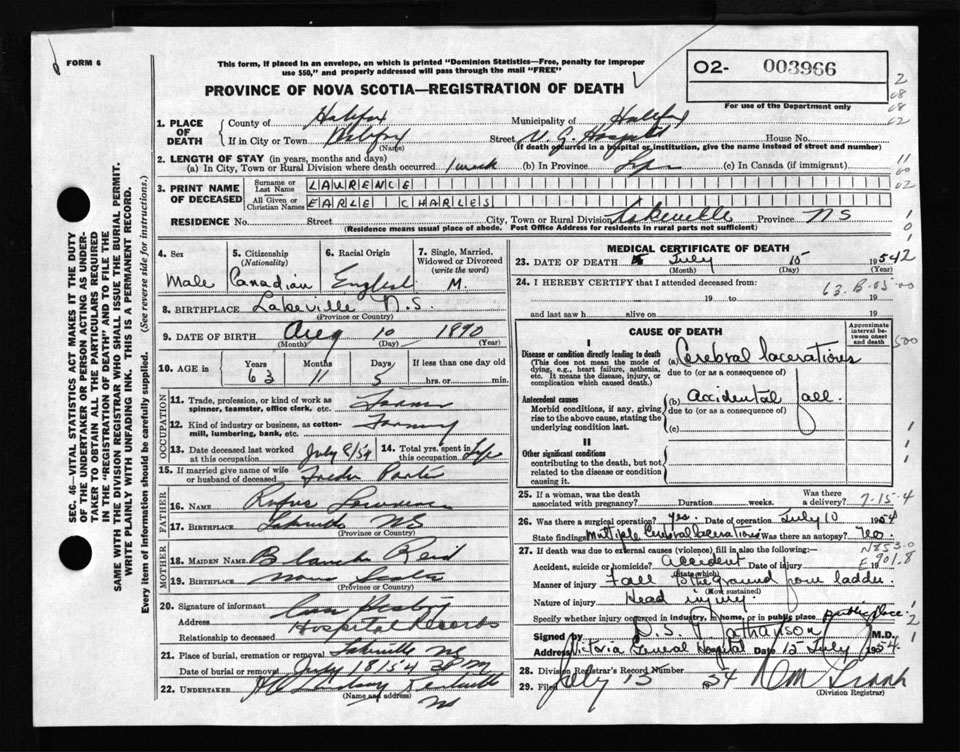 FORM 6
This form, if placed in an envelope, on which is printed "Dominion Statistics—Free, penalty for improper
use $50," and properly addressed will pass through the mail "FREE"
PROVINCE OF NOVA SCOTIA—REGISTRATION OF DEATH
02- 003966
For use of the Department only
1. PLACE OF DEATH
County of Halifax Municipality of Halifax
If in City or Town Halifax (Name) Street V. G. Hospital House No.
(If death occurred in a hospital or institution, give the name instead of street and number)
2. LENGTH OF STAY (in years, months and days)
(a) In City, Town or Rural Division where death occurred 1 week (b) In Province Life (c) In Canada (if immigrant)
3. PRINT NAME OF DECEASED
Surname or Last Name LAURENCE
All Given or Christian Names EARLE CHARLES
RESIDENCE No. Street City, Town or Rural Division Lakeville Province NS
(Residence means usual place of abode. Post Office Address for residents in rural parts not sufficient)
4. Sex Male
5. Citizenship (Nationality) Canadian
6. Racial Origin English
7. Single, Married, Widowed or Divorced (write the word) M.
8. BIRTHPLACE Lakeville N.S.
(Province or Country)
9. DATE OF BIRTH Aug 10 1890
(Month) (Day) (Year)
10. AGE in Years 63 Months 11 Days 5 If less than one day old hrs. or min.
OCCUPATION
11. Trade, profession, or kind of work as spinner, teamster, office clerk, etc. Farmer
12. Kind of industry or business, as cotton-mill, lumbering, bank, etc. Farming
13. Date deceased last worked at this occupation July 8/54
14. Total yrs. spent in this occupation Life
15. If married give name of wife or husband of deceased Porter
FATHER
16. NAME Rufus
17. BIRTHPLACE Lakeville NS
(Province or Country)
MOTHER
18. MAIDEN NAME Blanche Reid
19. BIRTHPLACE Nova Scotia
(Province or Country)
20. Signature of informant
Address Hospital Records
Relationship to deceased
21. Place of burial, cremation or removal Lakeville NS
Date of burial or removal July 18 1954 3 PM
22. UNDERTAKER Kentville
(Name and address) NS
MEDICAL CERTIFICATE OF DEATH
23. DATE OF DEATH July 15 1954
(Month) (Day) (Year)
24. I HEREBY CERTIFY that I attended deceased from:
19 to 19
and last saw h alive on 19
CAUSE OF DEATH
Approximate interval between onset and death
I
Disease or condition directly leading to death
(This does not mean the mode of dying, e.g., heart failure, asthenia, etc. It means the disease, injury, or complication which caused death.)
(a) Cerebral lacerations
due to (or as a consequence of)
Antecedent causes
Morbid conditions, if any, giving rise to the above cause, stating the underlying condition last.
(b) accidental fall.
due to (or as a consequence of)
(c)
II
Other significant conditions
contributing to the death, but not related to the disease or condition causing it.
25. If a woman, was the death associated with pregnancy? Duration weeks. Was there a delivery?
7-15-4
26. Was there a surgical operation? yes Date of operation July 10 1954
State findings multiple cerebral lacerations Was there an autopsy? Yes
27. If death was due to external causes (violence) fill in also the following:—
N853.0
Accident, suicide or homicide? accident (State which) Date of injury 19
E901.8
Manner of injury Fall to the ground from ladder.
(How sustained)
Nature of injury Head injury
Specify whether injury occurred in industry, in home, or in public place public place.
Signed by D. S. Nathanson M.D.
Address Victoria General Hospital Date 15 July 1954.
28. Division Registrar's Record Number
29. Filed July 15 54
(Division Registrar)
SEC. 46—VITAL STATISTICS ACT MAKES IT THE DUTY
OF THE UNDERTAKER OR PERSON ACTING AS UNDER-
TAKER TO OBTAIN ALL THE PARTICULARS REQUIRED
IN THE "REGISTRATION OF DEATH" AND TO FILE THE
SAME WITH THE DIVISION REGISTRAR WHO SHALL ISSUE THE BURIAL PERMIT.
WRITE PLAINLY WITH UNFADING INK. THIS IS A PERMANENT RECORD.
Every item of information should be carefully supplied. (See reverse side for instructions.)